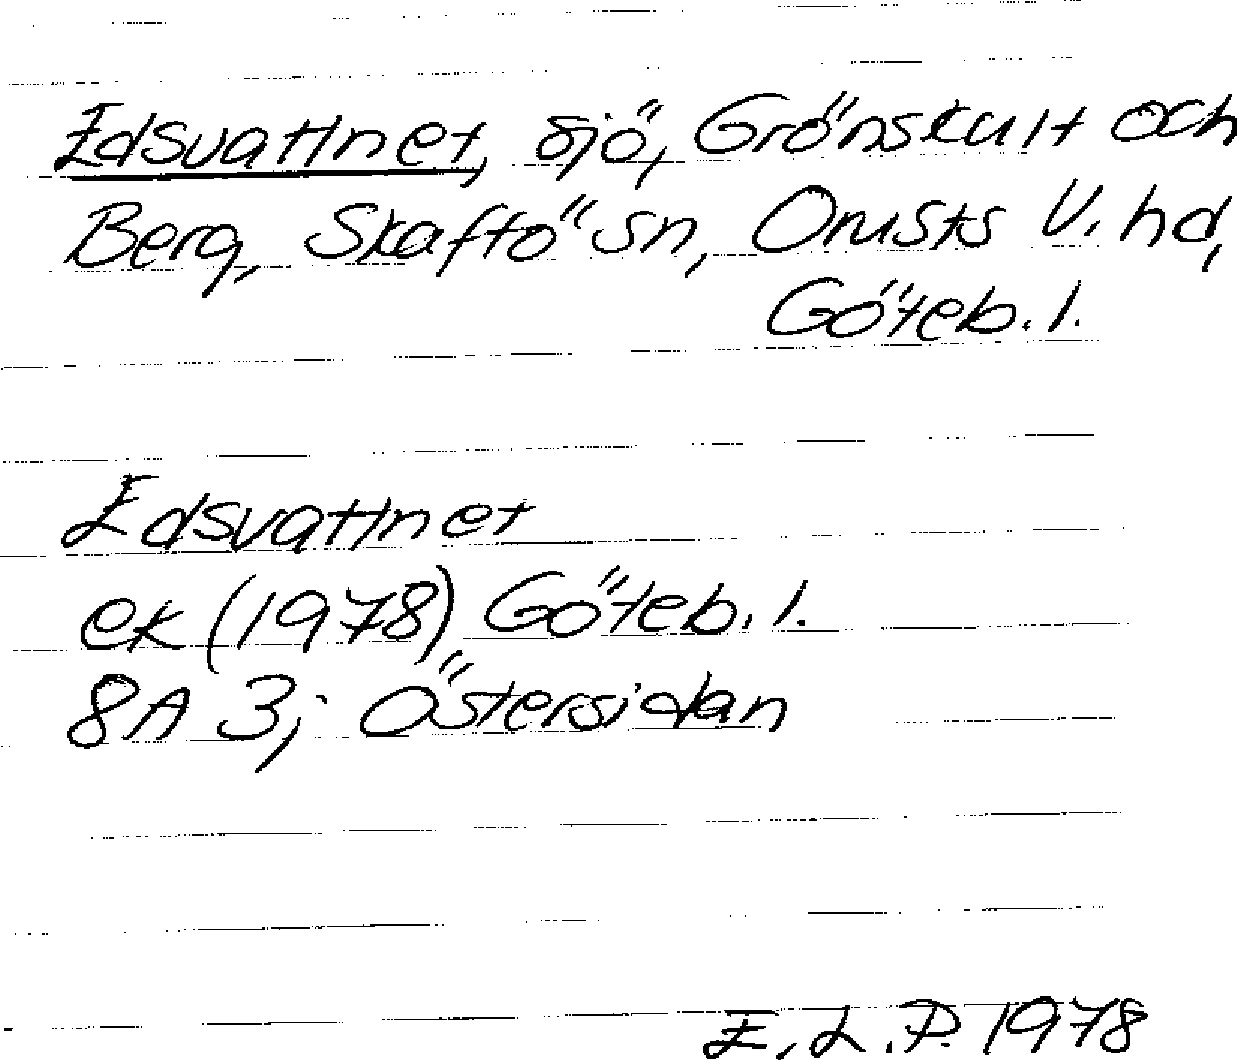 Edsvattnet, sjö, Grönskult och
Berg, Skaftö sn, Orusts V. hd,
Göteb. l.
Edsvattnet
ek (1978) Göteb. l.
8A 3; Östersidan
E. L. P. 1978